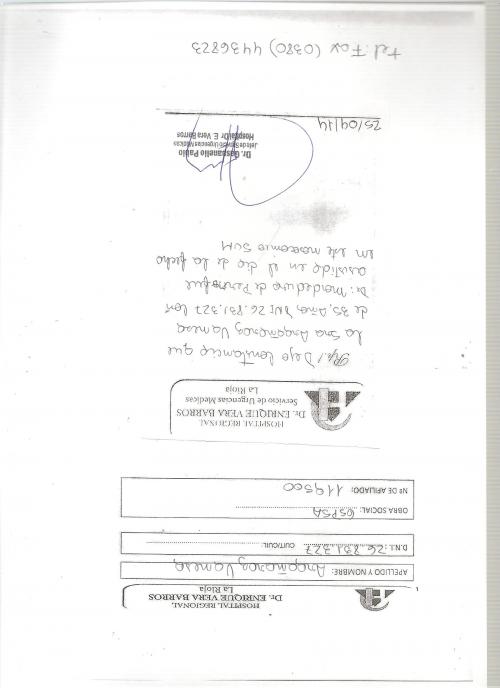 HOSPITAL REGIONAL
Dr. ENRIQUE VERA BARROS
La Rioja
APELLIDO Y NOMBRE: Angañaraz Vanesa
D.N.I: 26.831.327 CUIT/CUIL:
OBRA SOCIAL: OSPSA
Nº DE AFILIADO: 119500
HOSPITAL REGIONAL
Dr. ENRIQUE VERA BARROS
Servicio de Urgencias Medicas
La Rioja
Rp/ Dejo constancia que
la Sra Angañaraz Vanesa
de 35 Años DNI 26.831.327 con
Dx: Mordedura de Perro fue
asistida en el día de la fecha
en este nosocomio SUM
Dr. Gasparello Pablo
Jefe de Serv. Urgencias Médicas
Hospital Dr. E. Vera Barros
25/04/14
Tel: Fax (0380) 4436823